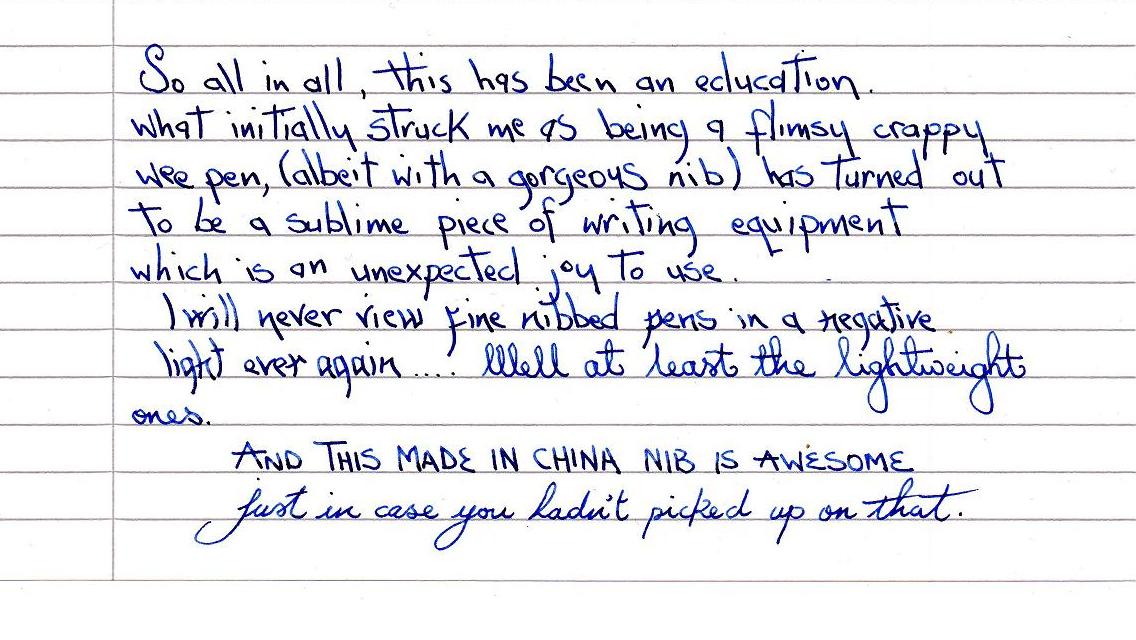 So all in all, this has been an education.
What initially struck me as being a flimsy crappy
wee pen, (albeit with a gorgeous nib) has turned out
to be a sublime piece of writing equipment
which is an unexpected joy to use.
I will never view fine nibbed pens in a negative
light ever again .... Well at least the lightweight
ones.
AND THIS MADE IN CHINA NIB IS AWESOME
just in case you hadn't picked up on that.